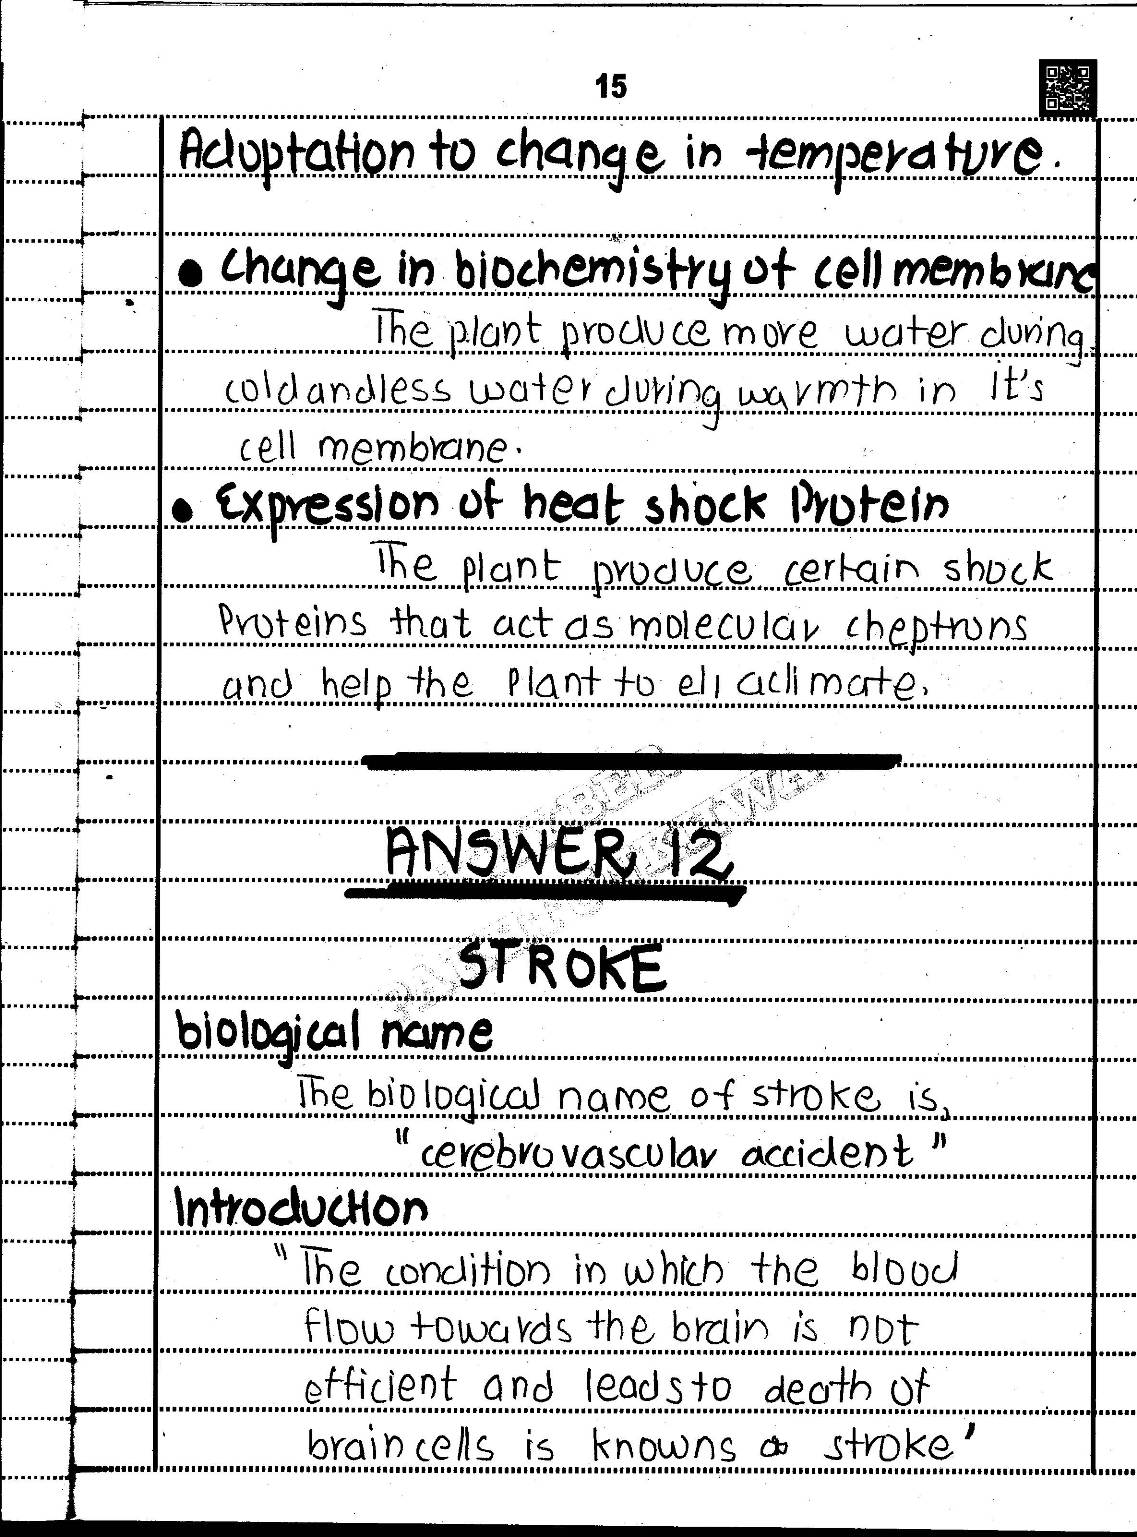 15
Adoptation to change in temperature.
• Change in biochemistry of cell membrane
The plant produce more water during
cold and less water during warmth in it's
cell membrane.
• Expression of heat shock Protein
The plant produce certain shock
Proteins that act as molecular cheptrons
and help the Plant to aclimate.
ANSWER 12
STROKE
biological name
The biological name of stroke is,
"cerebrovascular accident"
Introduction
"The condition in which the blood
flow towards the brain is not
efficient and leads to death of
brain cells is knowns stroke'